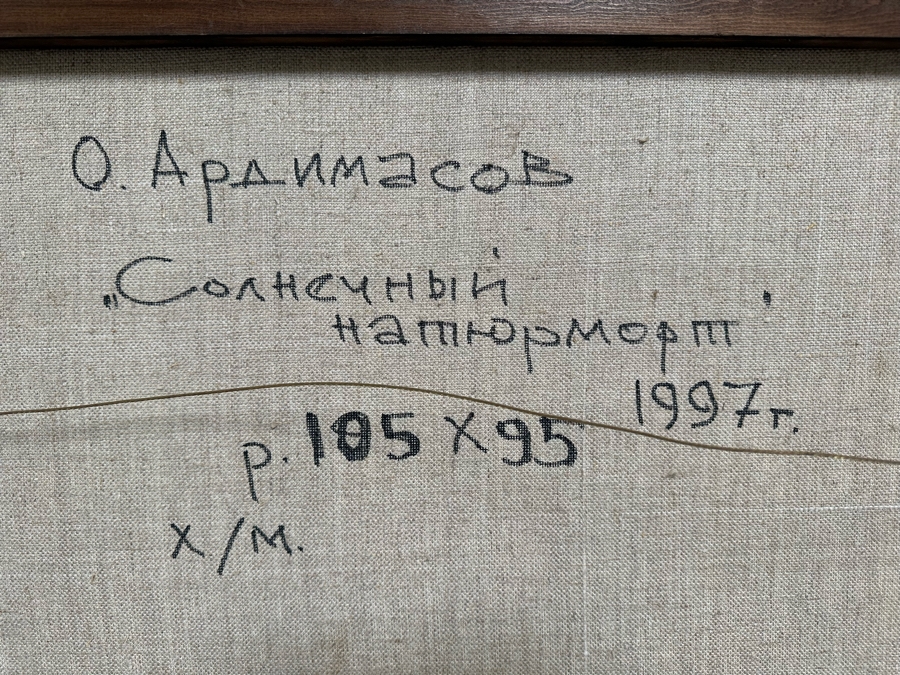 О. Ардимасов
„Солнечный
натюрморт"
1997г.
р. 105 х 95
х/м.